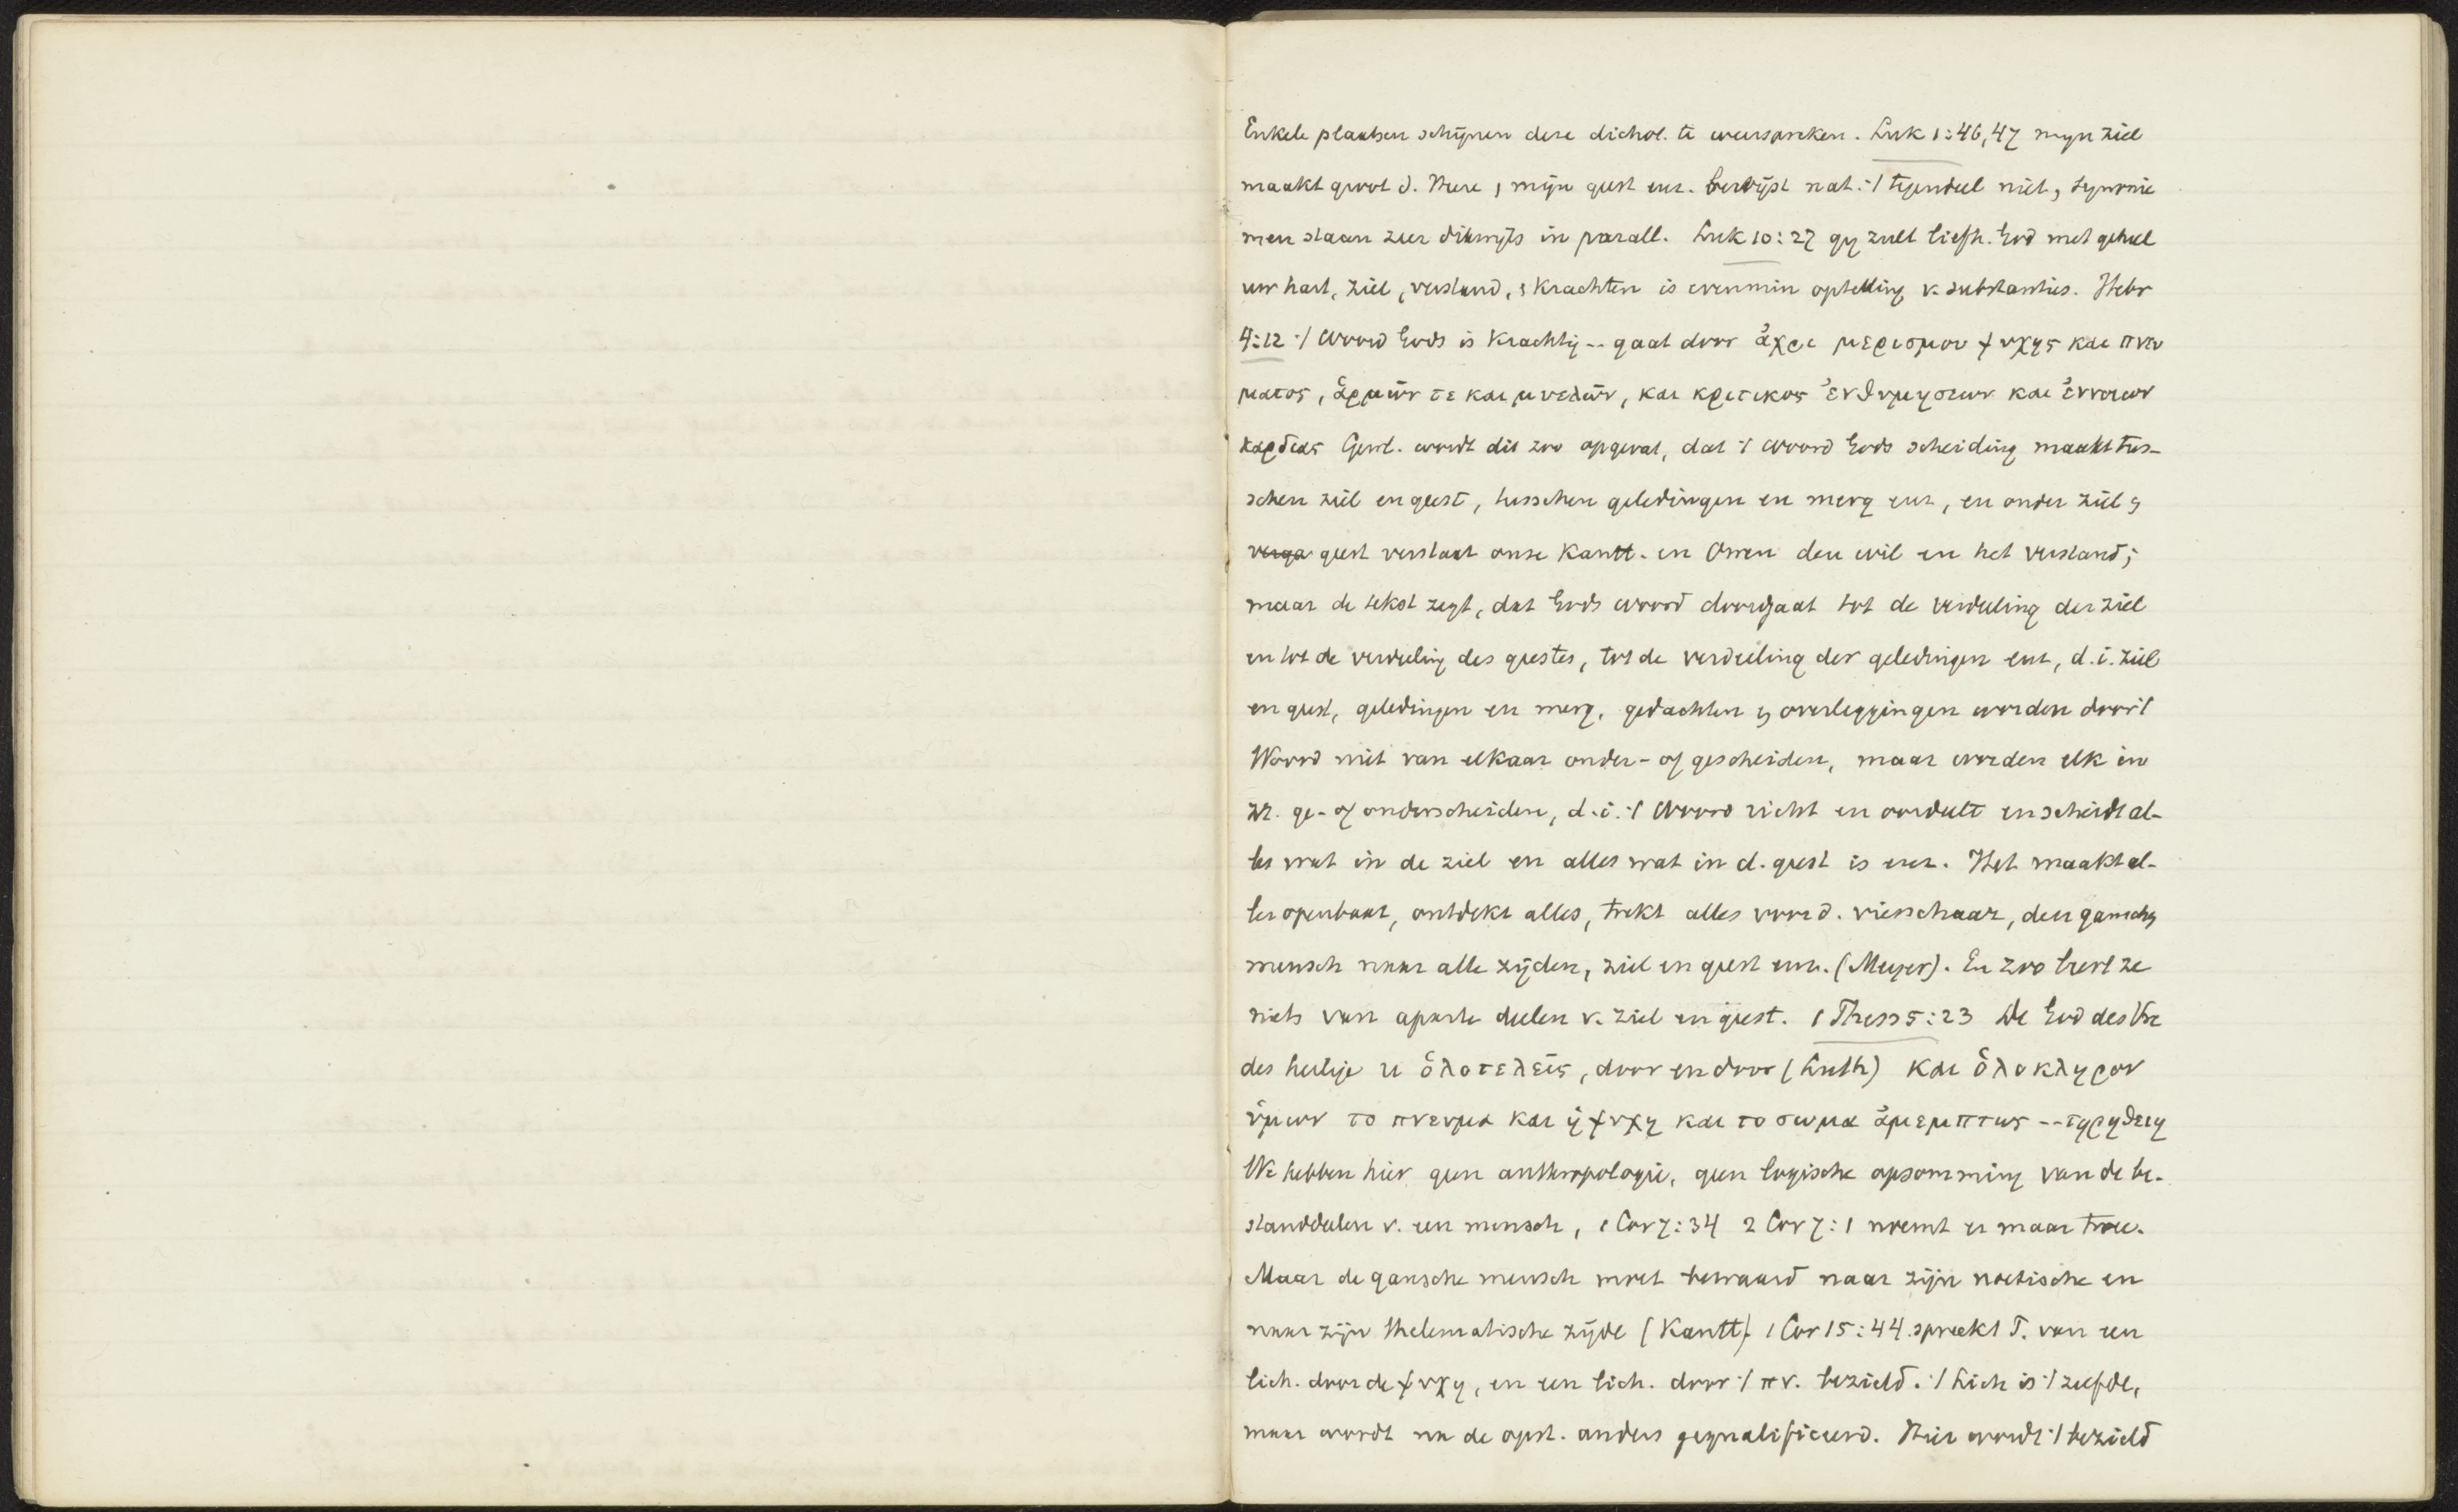 Enkele plaatsen schijnen deze dichot. te weerspreken. Luk 1:46,47 mijn ziel
maakt groot d. Heere, mijn geest enz. bewijst nat. 't tegendeel niet, synonie
men staan zeer dikwijls in parall. Luk 10:27 gij zult liefh. God met geheel
uw hart, ziel, verstand, & krachten is evenmin optelling v. substanties. Hebr
4:12 't Woord Gods is krachtig -- gaat door ἀχρι μερισμου ψυχης και πνευ
ματος, ἁρμῶν τε και μυελῶν, και κριτικος ἐνθυμησεων και ἐννοιων
καρδιας Gewl. wordt dit zoo opgevat, dat 't Woord Gods scheiding maakt tus-
schen ziel en geest, tusschen geledingen en merg enz, en onder ziel &
verga geest verstaat onze Kantt. en Owen den wil en het verstand;
maar de tekst zegt, dat Gods woord doorgaat tot de verdeling der ziel
en tot de verdeeling des geestes, tot de verdeeling der geledingen enz, d.i. ziel
en geest, geledingen en merg, gedachten & overleggingen worden door 't
Woord niet van elkaar onder- of gescheiden, maar worden elk in
zz. ge- of onderscheiden, d.i. 't Woord richt en oordeelt en scheidt al-
les wat in de ziel en alles wat in d. geest is enz. Het maakt al-
les openbaar, ontdekt alles, trekt alles voor d. vierschaar, den ganschen
mensch naar alle zijden, ziel en geest enz. (Meyer). En zoo leert ze
niets van aparte deelen v. ziel en geest. 1 Thess 5:23 De God des Vre
des heilige u ὁλοτελεῖς, door en door (Luth) και ὁλοκληρον
ὑμων το πνευμα και ἡ ψυχη και το σωμα ἀμεμπτως -- τηρηθειη
We hebben hier geen anthropologie, geen logische opsomming van de be-
standdeelen v. een mensch, 1 Cor 7:34 2 Cor 7:1 noemt er maar twee.
Maar de gansche mensch moet bewaard naar zijn noetische en
naar zijn thelematische zijde (Kantt). 1 Cor 15:44 spreekt P. van een
lich. door de ψυχη, en een lich. door 't πν. bezield. 't Lich is 't zelfde,
maar wordt na de opst. anders gequalificeerd. Hier wordt 't bezield